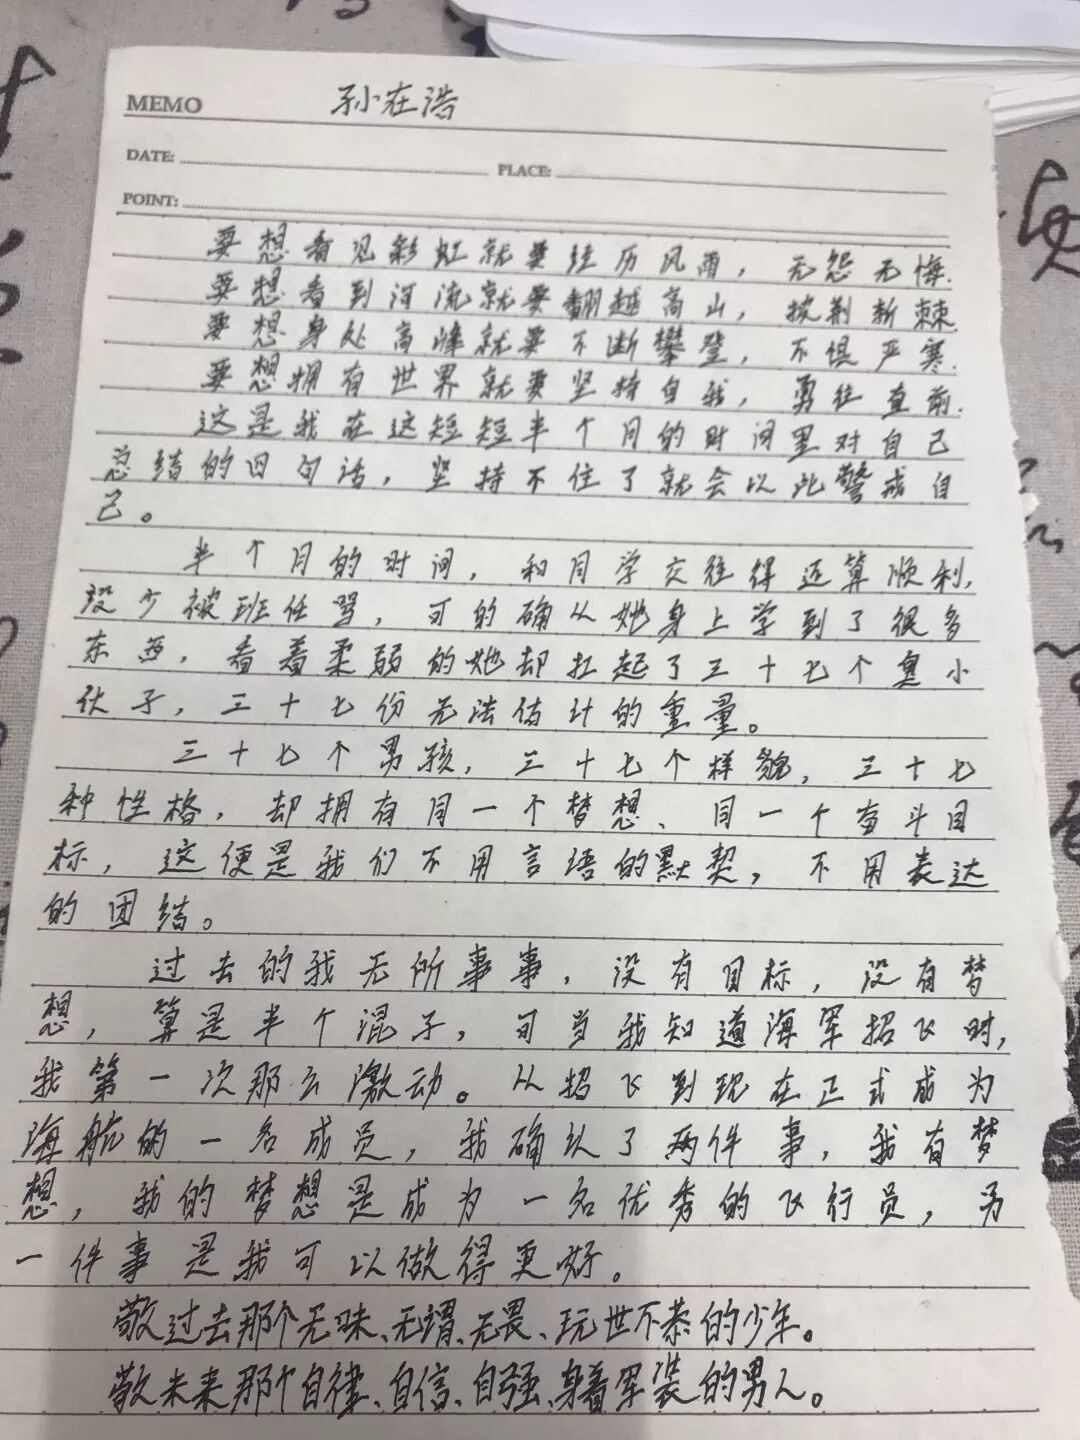 MEMO 孙在浩
DATE: PLACE:
POINT:
要想看见彩虹就要经历风雨，无怨无悔.
要想看到河流就要翻越高山，披荆斩棘.
要想身处高峰就要不断攀登，不惧严寒.
要想拥有世界就要坚持自我，勇往直前.
这是我在这短短半个月的时间里对自己
总结的四句话，坚持不住了就会以此警戒自
己。
半个月的时间，和同学交往得还算顺利，
没少被班任骂，可的确从她身上学到了很多
东西，看着柔弱的她却扛起了三十七个臭小
伙子，三十七份无法估计的重量。
三十七个男孩，三十七个样貌，三十七
种性格，却拥有同一个梦想、同一个奋斗目
标，这便是我们不用言语的默契，不用表达
的团结。
过去的我无所事事，没有目标，没有梦
想，算是半个混子，可当我知道海军招飞时，
我第一次那么激动。从招飞到现在正式成为
海航的一名成员，我确认了两件事，我有梦
想，我的梦想是成为一名优秀的飞行员，另
一件事是我可以做得更好。
敬过去那个无味、无谓、无畏、玩世不恭的少年。
敬未来那个自律、自信、自强、身着军装的男人。